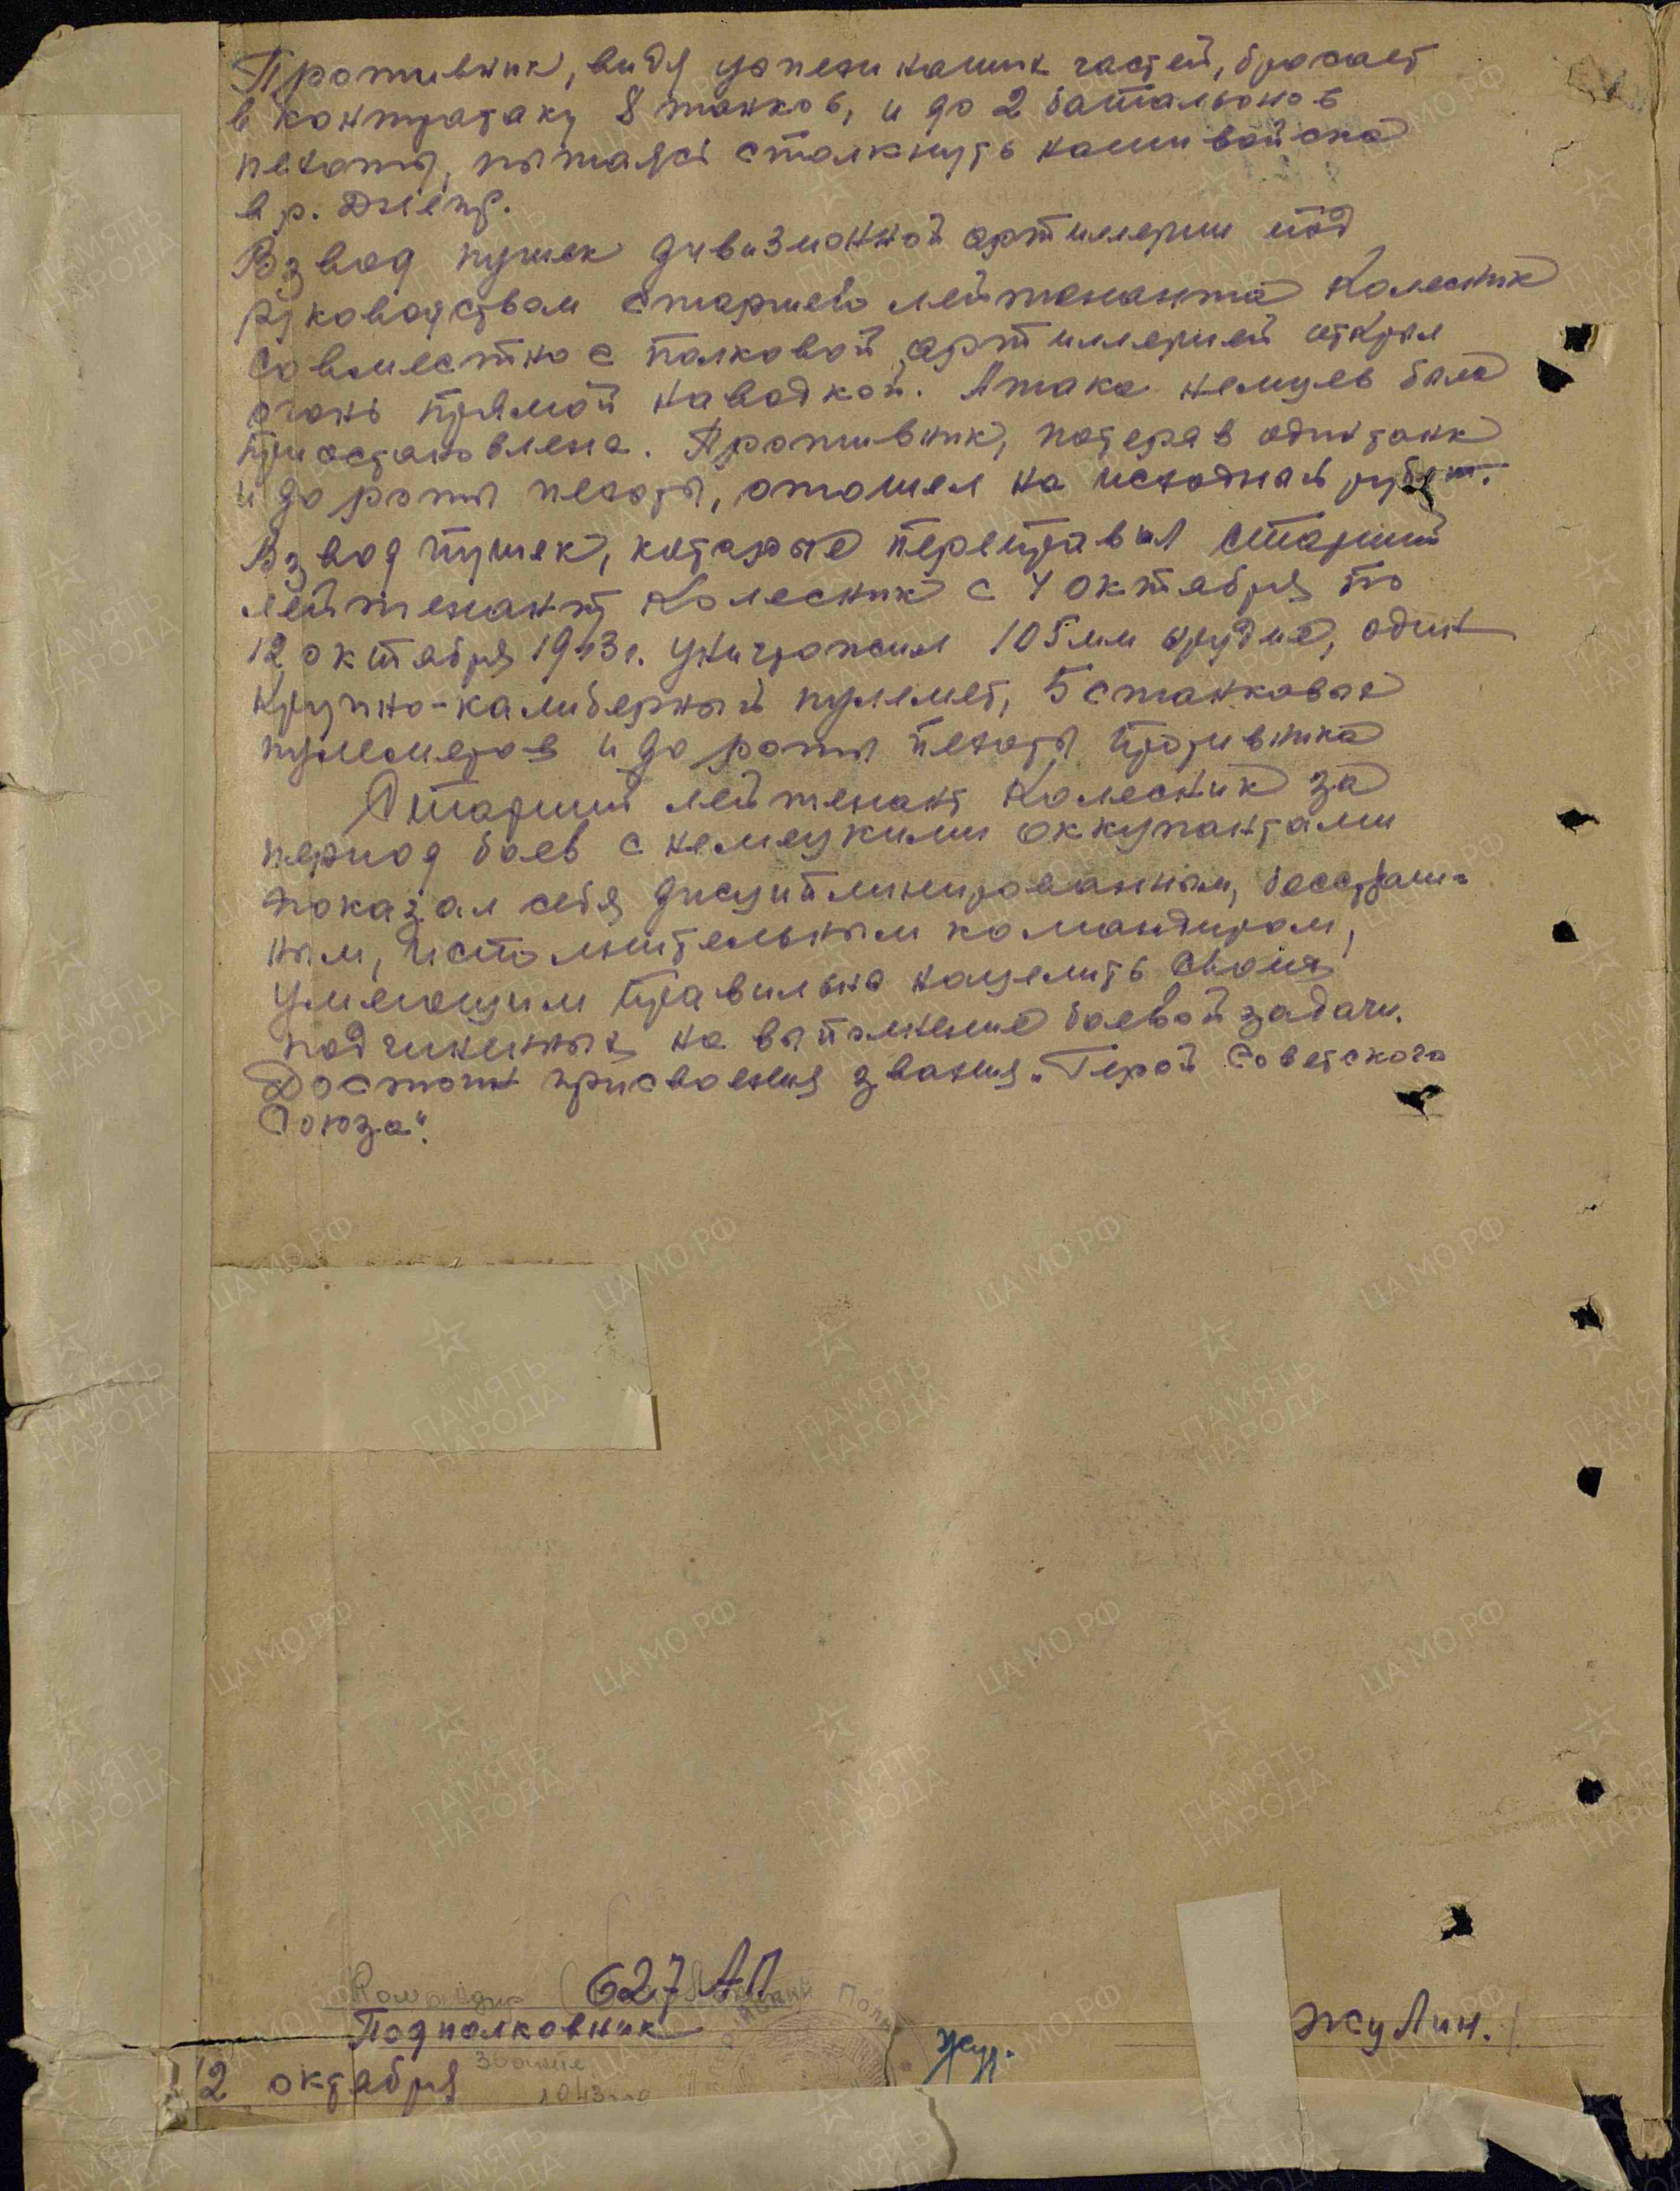 Противник, видя успехи наших частей, бросает
в контратаку 8 танков, и до 2 батальонов
пехоты, пытаясь столкнуть наши войска
в р. Днепр.
Взвод пушек дивизионной артиллерии под
руководством старшего лейтенанта Колесник
совместно с полковой артиллерией открыл
огонь прямой наводкой. Атака немцев была
приостановлена. Противник, потеряв один танк
и до роты пехоты, отошел на исходный рубеж.
Взвод пушек, которые переправил старший
лейтенант Колесник с 4 октября по
12 октября 1943 г. уничтожил 105 мм орудие, один
крупно-калиберный пулемет, 5 станковых
пулеметов и до роты пехоты противника
Старший лейтенант Колесник за
период боев с немецкими оккупантами
показал себя дисциплинированным, бесстраш=
ным, исполнительным командиром,
умеющим правильно нацелить своих
подчиненных на выполнение боевой задачи.
Достоин присвоения звания „Герой Советского
Союза".
Командир 627 АП
Подполковник Жулин.
звание
12 октября 1943 года